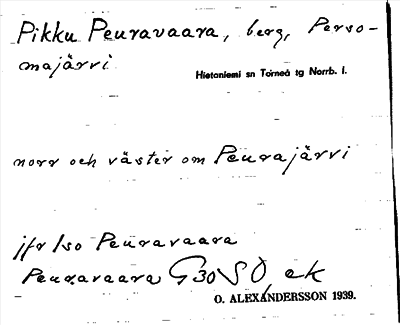 Pikku Peuravaara, berg, Perso-
majärvi
Hietaniemi sn Torneå tg Norrb. l.
norr och väster om Peurajärvi
jfr Iso Peuravaara
Peuravaara G30SO ek
O. ALEXANDERSSON 1939.